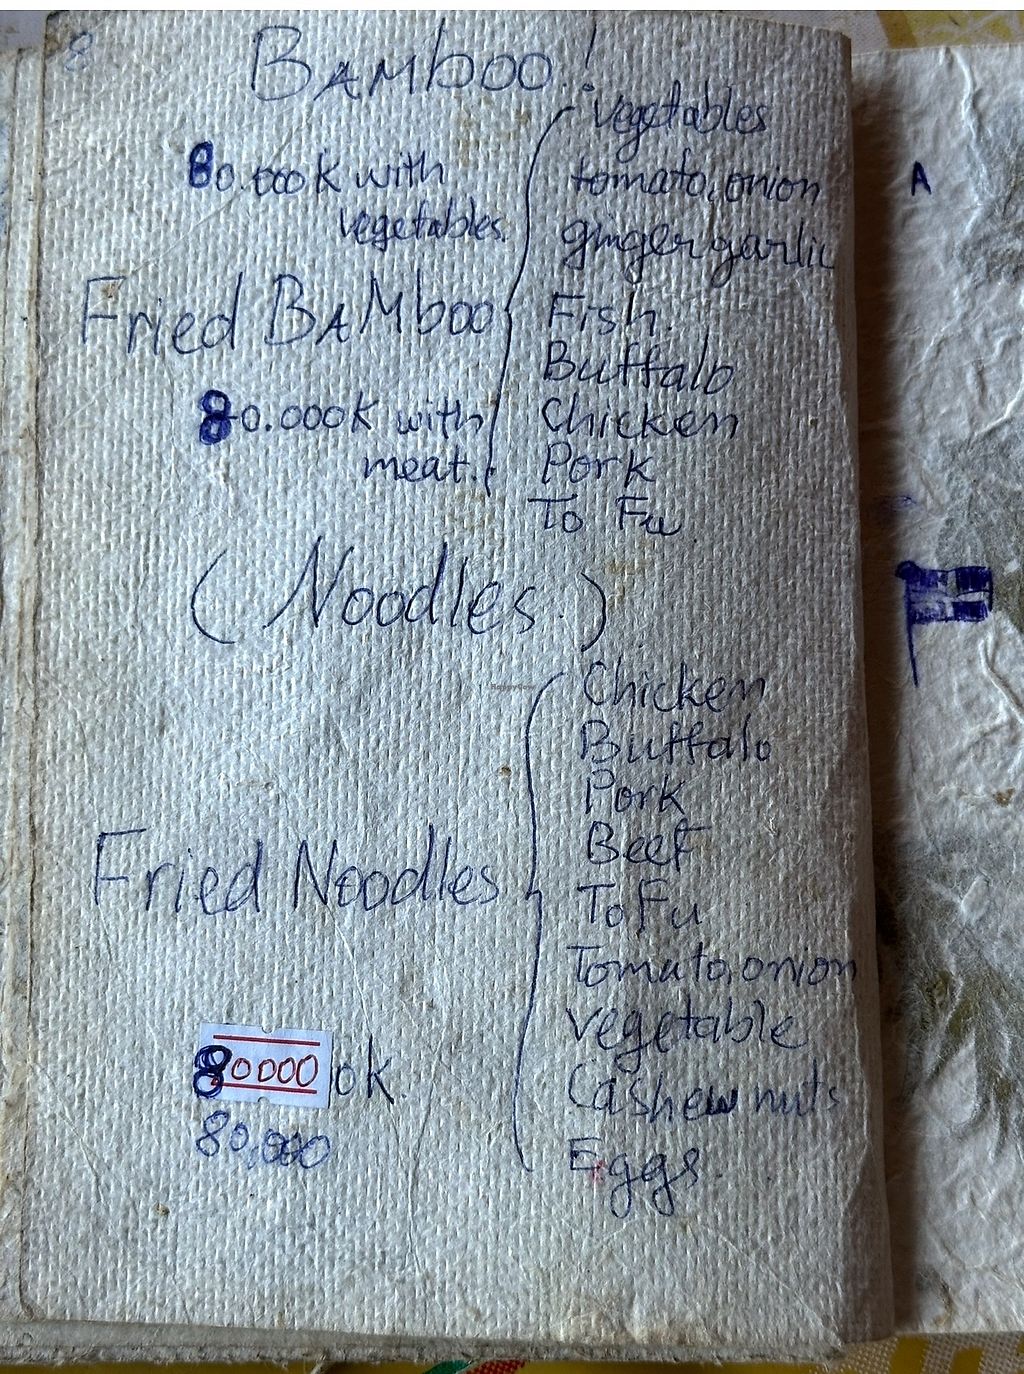 8
BAMboo!
80.000K with
vegetables.
Fried BAMboo
80.000K with
meat.
vegetables
tomato, onion
ginger garlic
Fish.
Buffalo
Chicken
Pork
To Fu
(Noodles.)
Fried Noodles
80000 ok.
80,000
Chicken
Buffalo
Pork
Beef
To Fu
Tomato, onion
vegetable
Cashew nuts
Eggs.
A
HappyCow